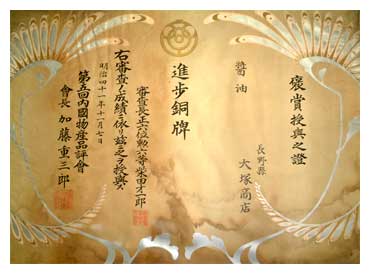 褒賞授與之證
長野縣
大塚商店
醬油
進歩銅牌
審查長正六位勲六等柴田才一郎
右審查ノ成績ニ依リ茲ニ之ヲ授與ス
明治四十一年十一月七日
第五回內國物産品評會
會長 加藤重三郎